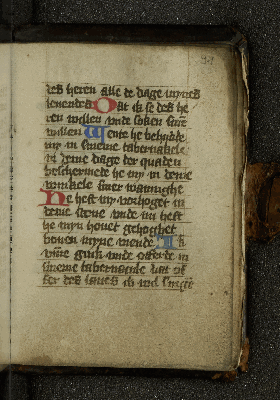 des heren alle de dage mynes
leuendes Dat ik se des he
ren willen vnde soken sinen
willen Wente he behudde
my in sineme tabernakele
in deme dage der quaden
beschermede he my in deme
winkele siner waninghe
He heft my vorhoget in
deme stene vnde nu heft
he myn houet gehoghet
bouen myne viende Ik
vmme gink vnde offerde in
sineme tabernacule dat of
fer des loues ik wil singen